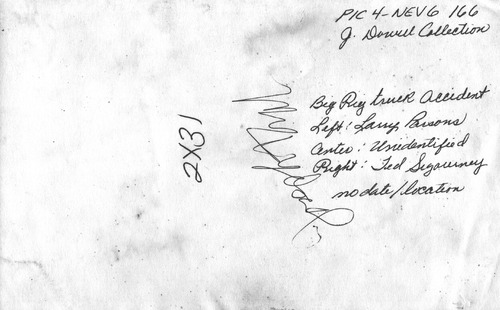 PIC 4-NEVG 166
J. Dowell Collection
Big Rig truck Accident
Left: Larry Parsons
Center: Unidentified
Right: Ted Sigourney
no date/location
2X31